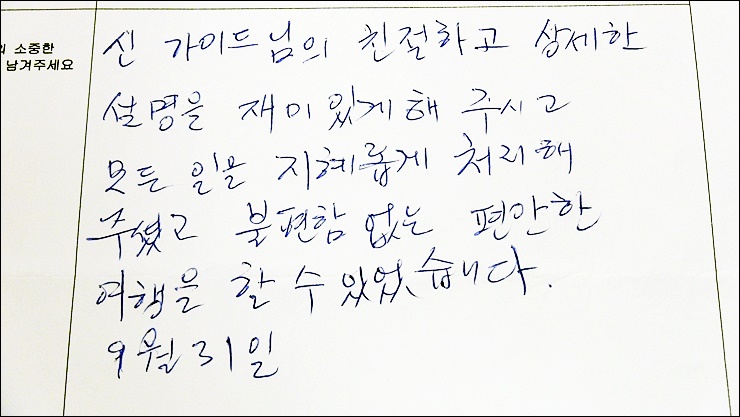 소중한
남겨주세요
신 가이드님의 친절하고 상세한
설명을 재미있게 해 주시고
모든 일을 지혜롭게 처리해
주셨고 불편함 없는 편안한
여행을 할 수 있었습니다.
9월 31일